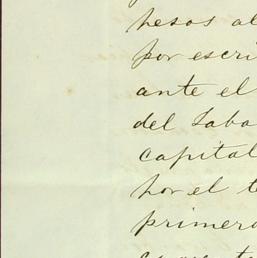 pesos al
por escri
ante el
del Saba
capital
por el t
primera